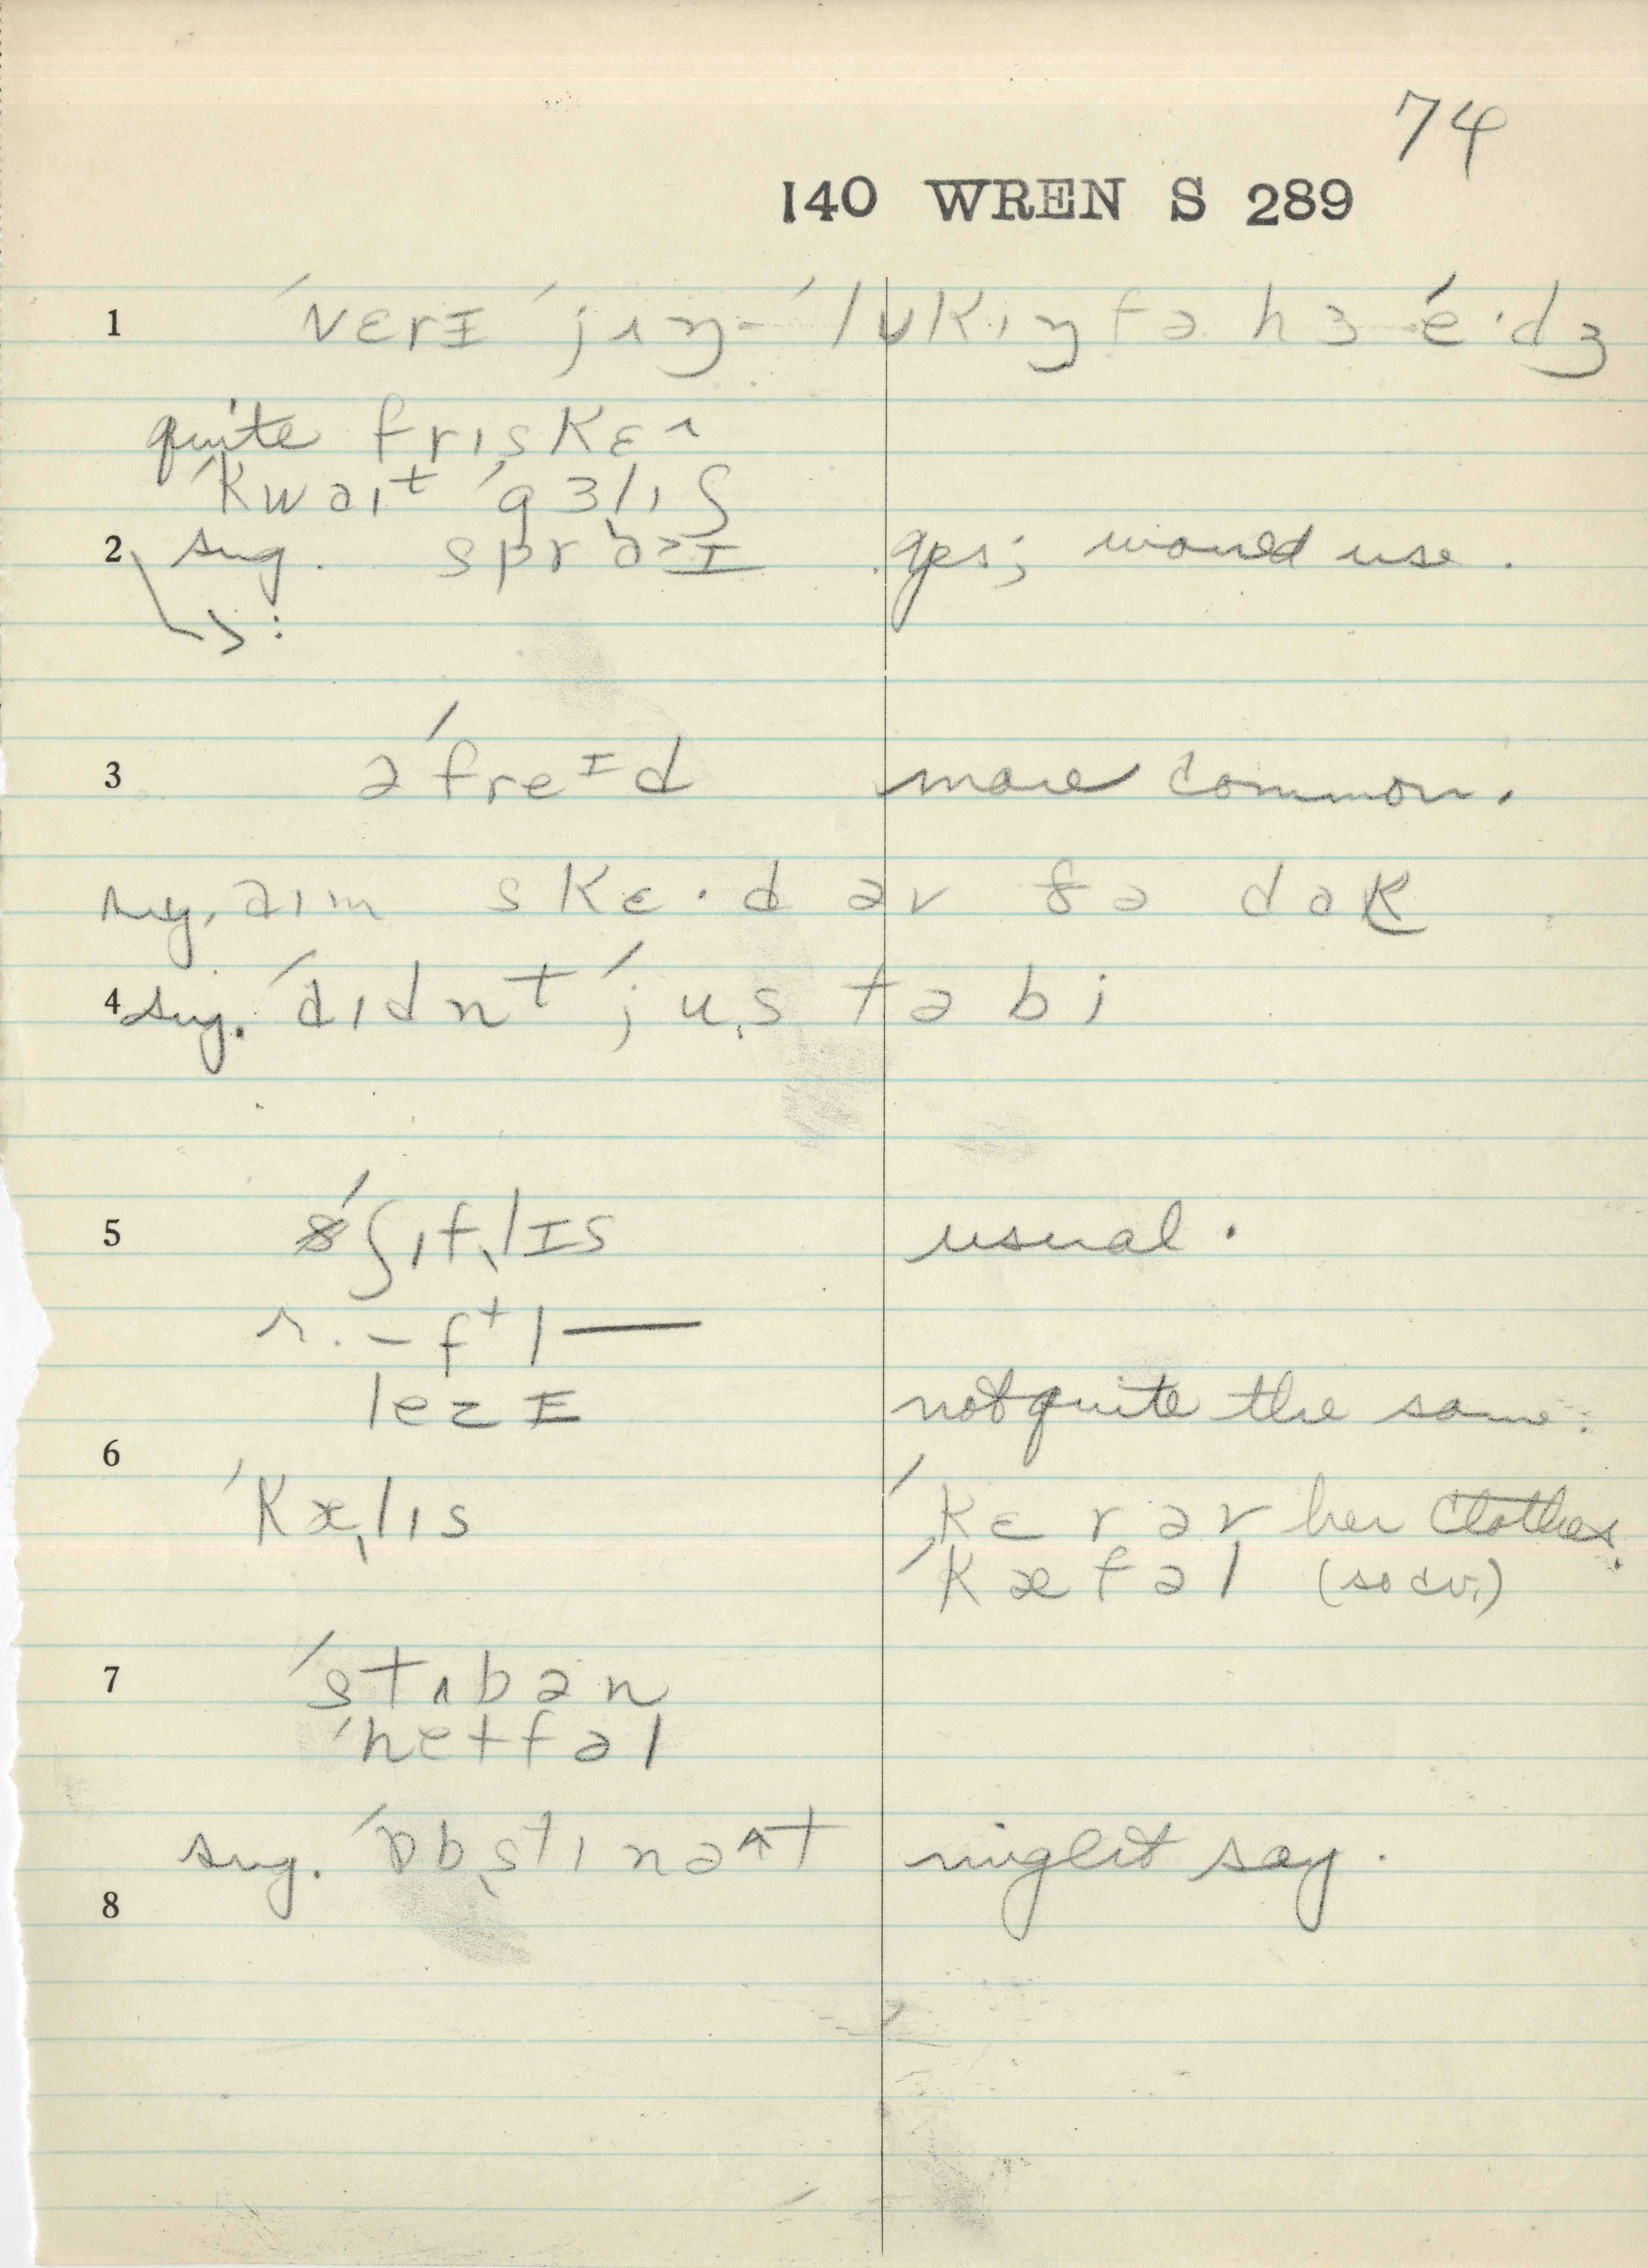 74
140 WREN S 289
1 ˈvɛrɪ ˈjʌŋ-ˈlʊkɪŋ fə hɜ ˈe·dʒ
quite frɪskɛʌ
ˈkwaɪt ˈgɜlɪʃ
2 sug. sprɑɪ yes; would use.
:
3 əˈfreɪd more common.
sug. aɪm skɛ·d əv ðə dɑk
4 sug. ˈdɪdnt ˈjus tə bi
5 ˈʃɪflɪs usual.
r. – ftl —
lezɪ not quite the same.
6
ˈkælɪs ˈkɛr əv her clothes.
ˈkæfəl (so cv.)
7 ˈstʌbən
ˈhetfəl
sug. ˈɒbstɪnət might say.
8